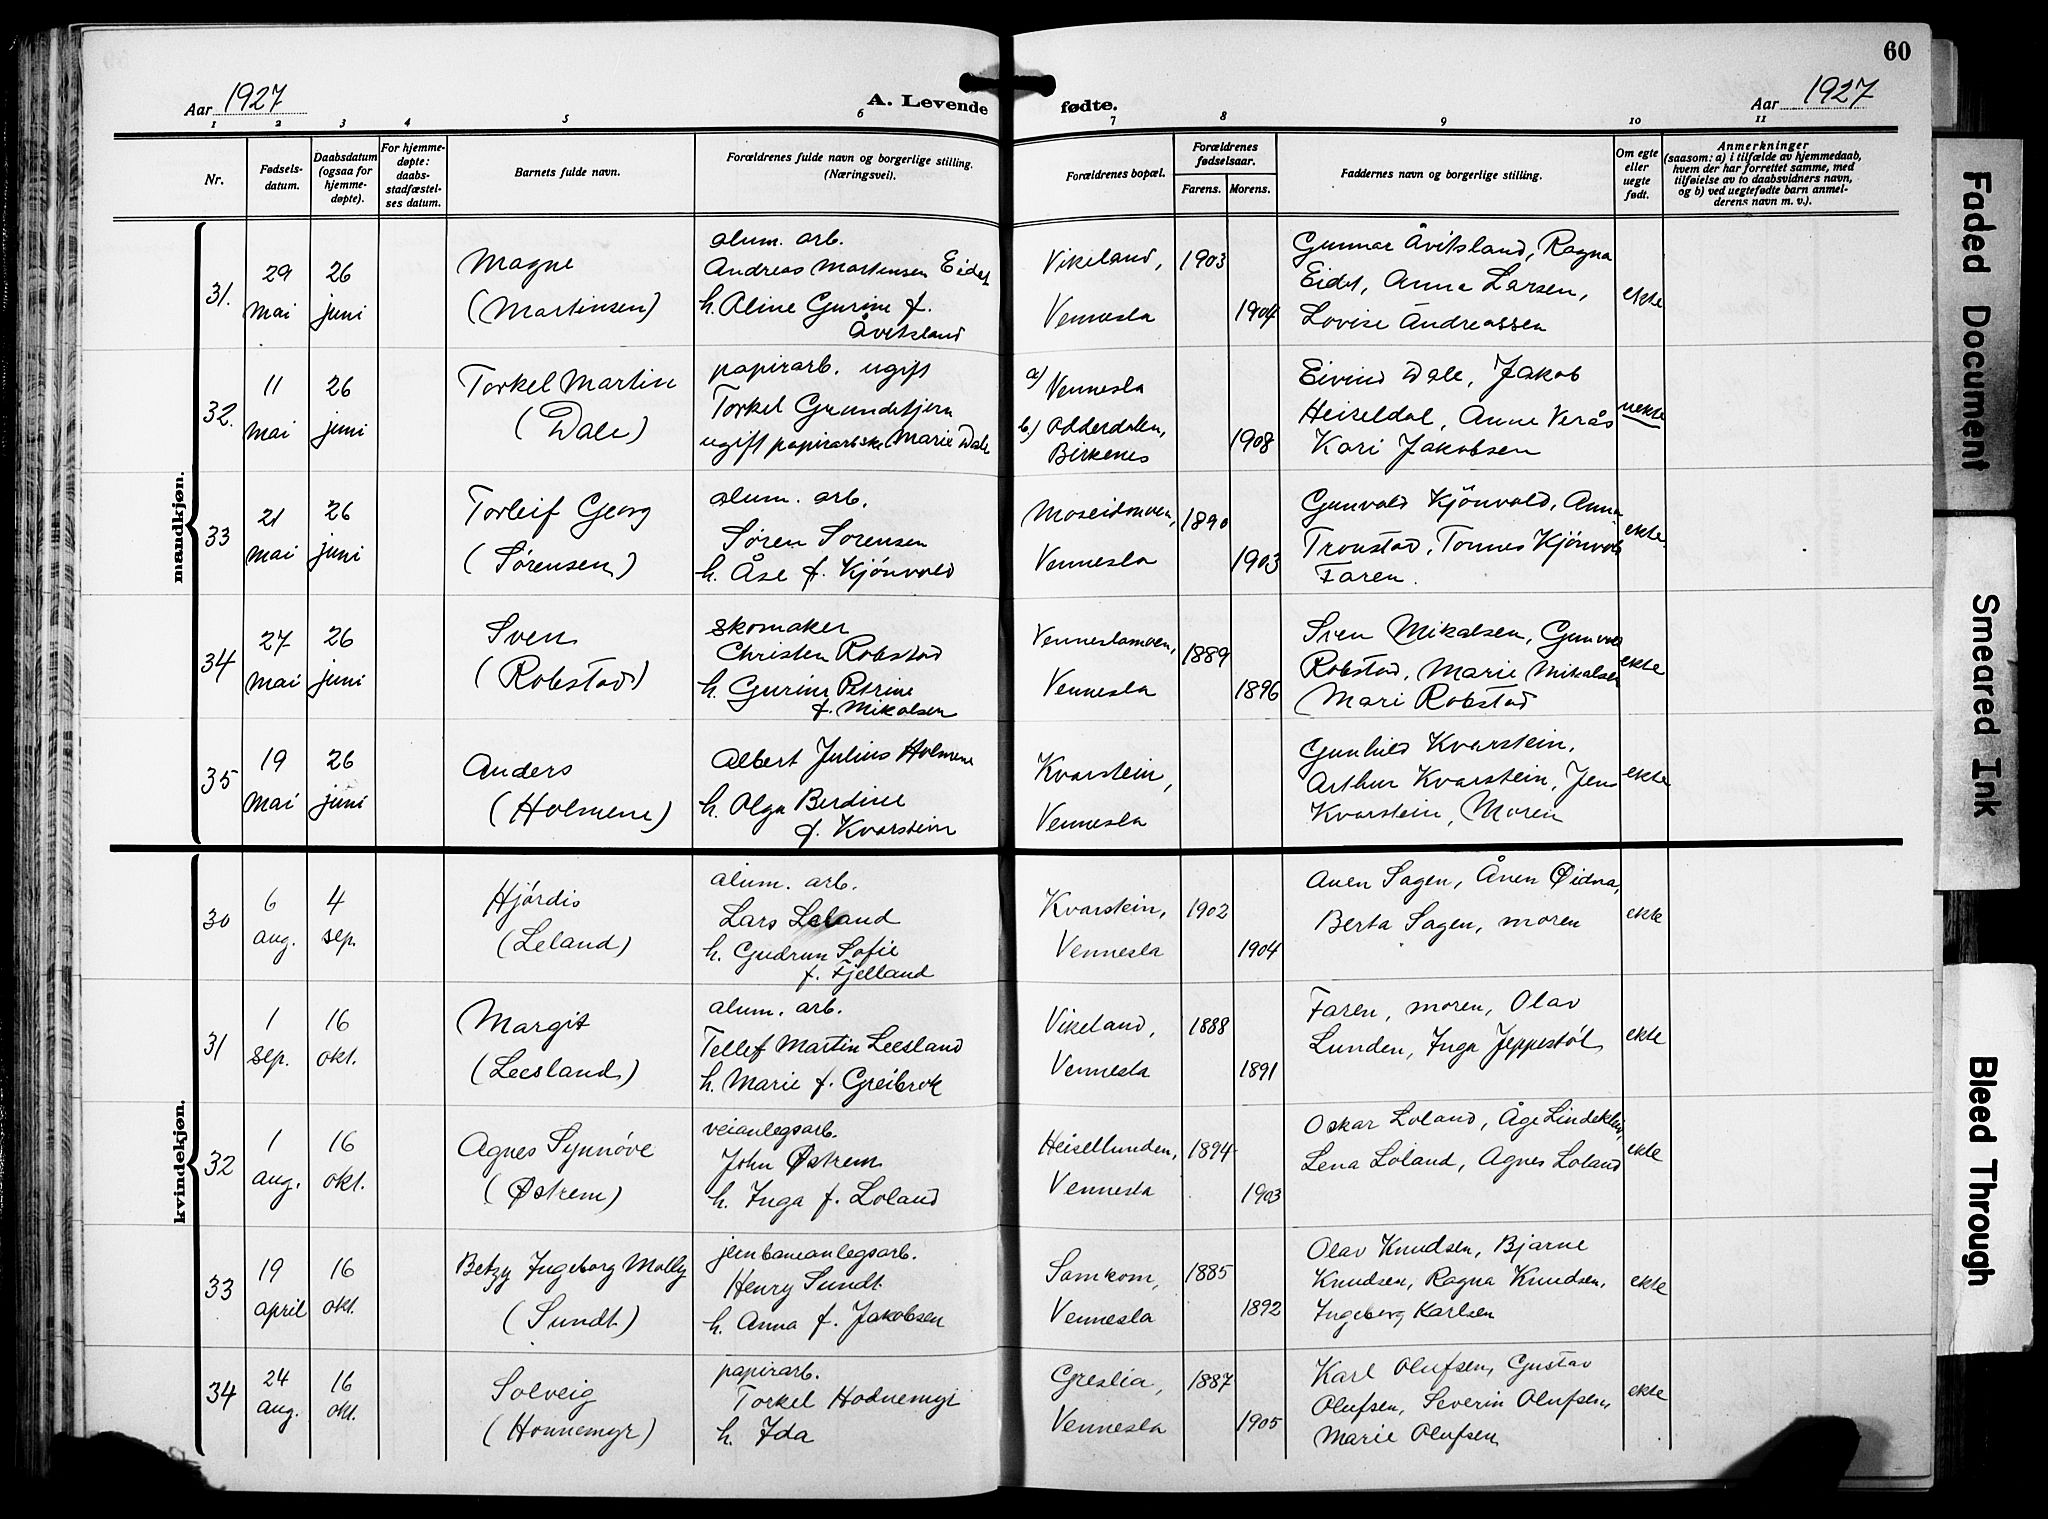 60
Aar 1927
A. Levende fødte.
Aar 1927
1 2 3 4 5 6 7 8 9 10 11
Nr.
Fødsels-
datum.
Daabsdatum
(ogsaa for
hjemme-
døpte).
For hjemme-
døpte:
daabs-
stadfæstel-
ses datum.
Barnets fulde navn.
Forældrenes fulde navn og borgerlige stilling.
(Næringsvei).
Forældrenes bopæl.
Forældrenes
fødselsaar.
Farens. Morens.
Faddernes navn og borgerlige stilling.
Om egte
eller
uegte
født.
Anmerkninger
(saasom: a) i tilfælde av hjemmedaab,
hvem der har forrettet samme, med
tilføielse av to daabsvidners navn,
og b) ved uegtefødte barn anmel-
derens navn m. v.).
mandkjøn.
31.
29
mai
26
juni
Magne
(Martinsen)
alum. arb.
Andreas Martinsen Eidet
h. Aline Gurine f.
Åvitsland
Vikeland,
Vennesla
1903
1904
Gunnar Åvitsland, Ragna
Eidet, Anna Larsen,
Lovise Andreassen
ekte
32.
11
mai
26
juni
Torkel Martin
(Dale)
papirarb. ugift
Torkel Grundetjern
ugift papirarbske Marie Dale
a) Vennesla
b) Odderdalen,
Birkenes
1908
Eivind Dale, Jakob
Heiseldal, Anne Verås
Kari Jakobsen
uekte
33
21
mai
26
juni
Torleif Georg
(Sørensen)
alum. arb.
Søren Sørensen
h. Åse f. Kjönvold
Moseidmoen,
Vennesla
1890
1903
Gunvald Kjönvold, Anna
Tronstad, Tonnes Kjönvold
Faren.
ekte.
34
27
mai
26
juni
Sven
(Robstad)
skomaker
Christen Robstad
h. Gurine Petrine
f. Mikalsen
Venneslamoen,
Vennesla
1889
1896
Sven Mikalsen, Gunvald
Robstad, Marie Mikalsen
Mari Robstad
ekte
35
19
mai
26
juni
Anders
(Holmene)
Albert Julius Holmene
h. Olga Berdine
f. Kvarstein
Kvarstein,
Vennesla
Gunhild Kvarstein,
Arthur Kvarstein, Jens
Kvarstein, Moren
ekte
kvindekjøn.
30
6
aug.
4
sep.
Hjørdis
(Leland)
alum. arb.
Lars Leland
h. Gudrun Sofie
f. Fjelland
Kvarstein,
Vennesla
1902
1904
Anen Sagen, Ånen Øidna,
Berta Sagen, moren
ekte
31
1
sep.
16
okt.
Margit
(Leesland)
alum. arb.
Tellef Martin Leesland
h. Marie f. Greibrok
Vikeland,
Vennesla
1888
1891
Faren, moren, Olav
Lunden, Inga Jeppestøl
ekte
32
1
aug.
16
okt.
Agnes Synnøve
(Østrem)
veianlegsarb.
John Østrem
h. Inga f. Loland
Heisellunden,
Vennesla
1894
1903
Oskar Loland, Åge Lindekleiv,
Lena Loland, Agnes Loland
ekte
33
19
april
16
okt.
Betzy Ingeborg Molly
(Sundt)
jernbaneanlegsarb.
Henry Sundt
h. Anna f. Jakobsen
Samkom,
Vennesla
1885
1892
Olav Knudsen, Bjarne
Knudsen, Ragna Knudsen,
Ingeborg Karlsen
ekte
34
24
aug.
16
okt.
Solveig
(Honnemyr)
papirarb.
Torkel Hodnemyr
h. Ida
Greslia,
Vennesla
1887
1905
Karl Olufsen, Gustav
Olufsen, Severin Olufsen,
Marie Olufsen
ekte
Faded Document
Smeared Ink
Bleed Through